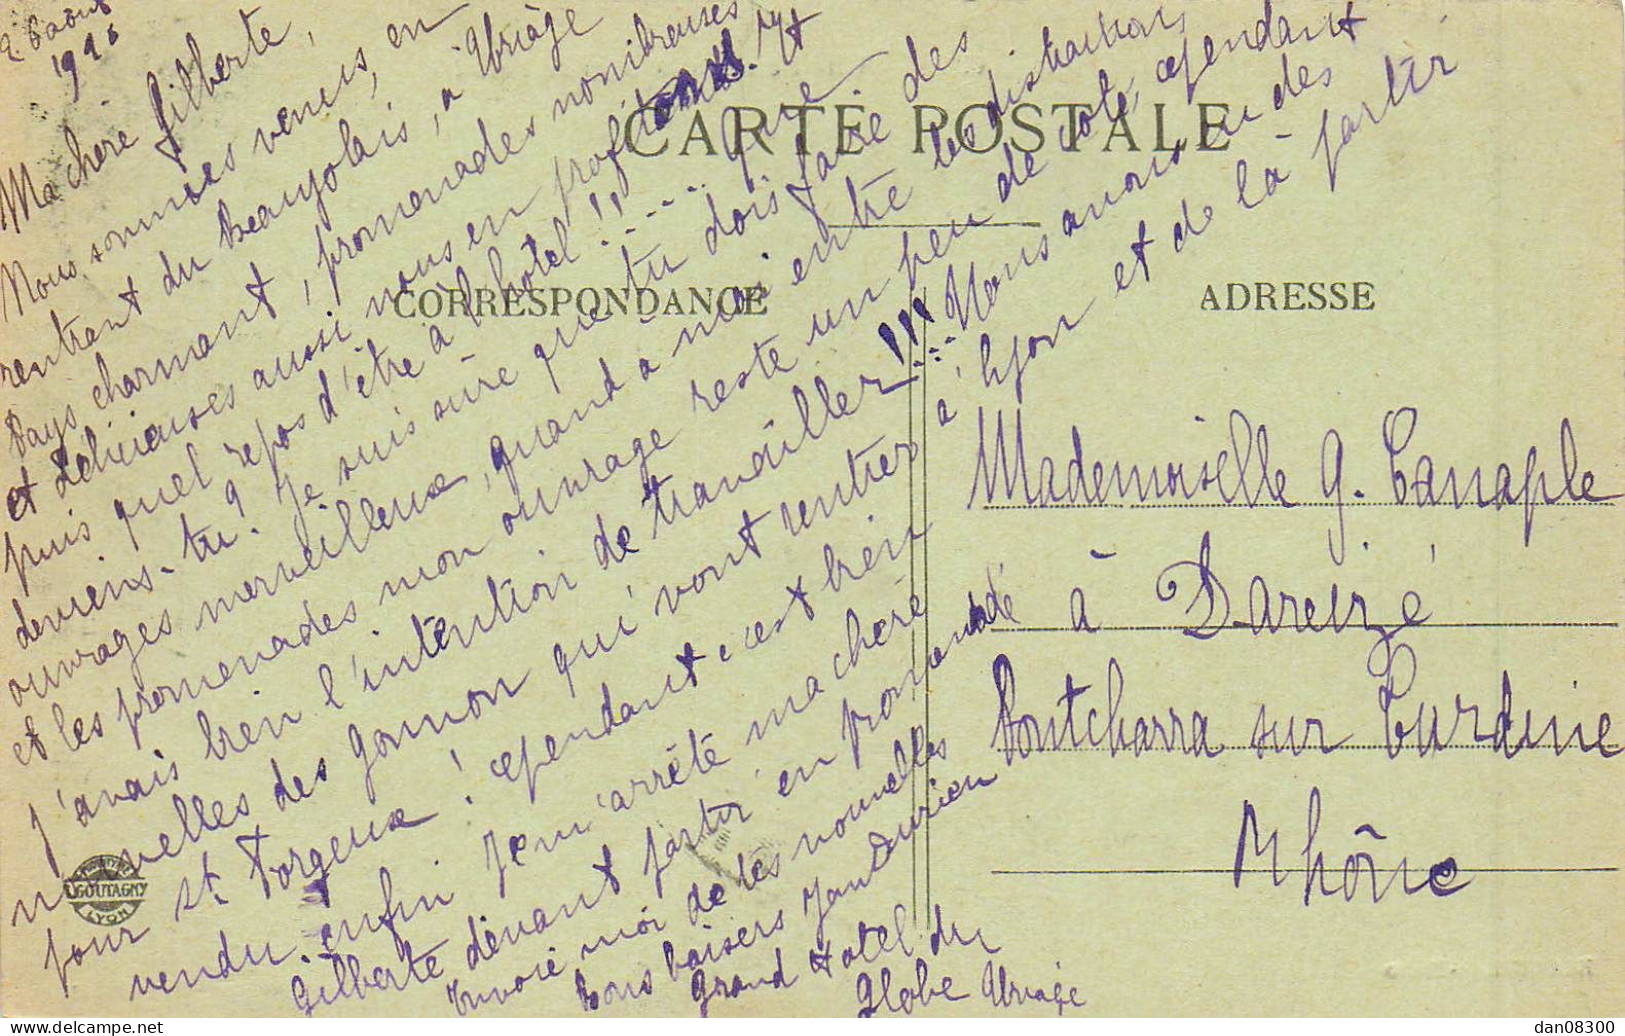 1926
Ma chère Gilberte,
Nous sommes venus, en
rentrant du Beaujolais, à Uriage
Pays charmant, promenades nombreuses
et délicieuses aussi nous en profitons. Et
puis quel repos d'être à l'hôtel !! .... Que
deviens-tu? Je suis sûre que tu dois faire des
ouvrages merveilleux, quand à moi entre les distractions
et les promenades mon ouvrage reste un peu de côté cependant
j'avais bien l'intention de travailler!!! .... Nous avons eu des
nouvelles des gonnon qui vont rentrer à Lyon et de là partir
pour St. Forgeux! cependant, c'est bien
vendu. enfin Je m'arrête ma chère
Gilberte devant partir en promenade
Envoie moi de tes nouvelles
Bons baisers
Grand Hotel du
Globe Uriage
CARTE POSTALE
CORRESPONDANCE
ADRESSE
Mademoiselle G. Canaple
à Dareizé
Pontcharra sur Turdine
Rhône
GOUTAGNY
LYON
dan08300